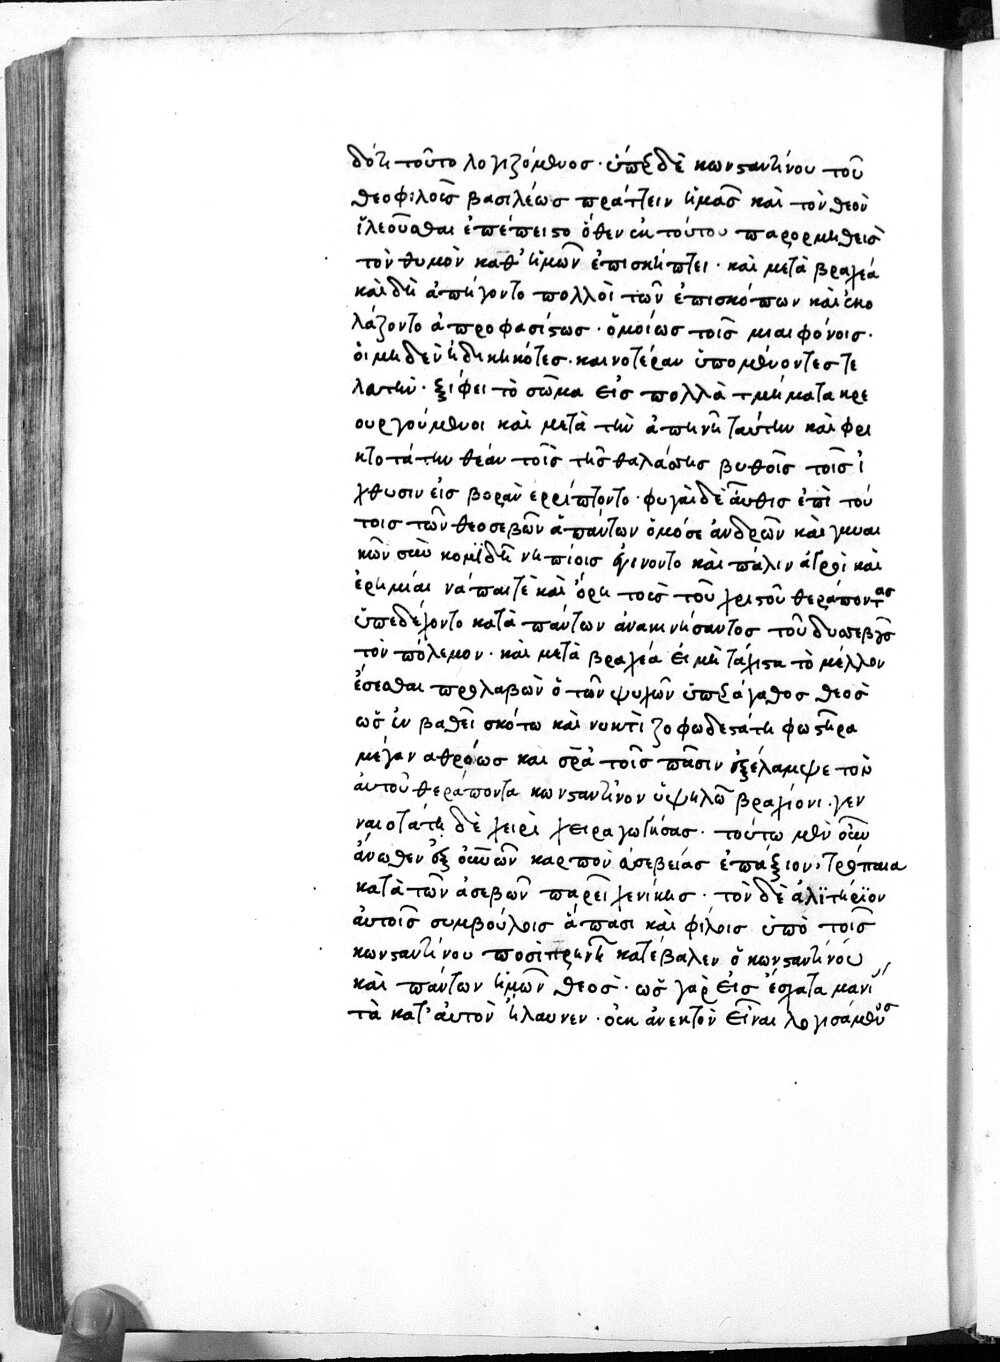 δότι τοῦτο λογιζόμενος · ὑπὲρ δὲ κωνσταντίνου τοῦ
θεοφιλοῦς βασιλέως πράττειν ἡμᾶς καὶ τὸν θεὸν
ἱλεοῦσθαι ἐπέπειστο ὅθεν ἐκ τούτου παρορμηθεὶς
τὸν θυμὸν καθ' ἡμῶν ἐπισκήπτει · καὶ μετὰ βραχέα
καὶ δὴ ἀπήγοντο πολλοὶ τῶν ἐπισκόπων καὶ ἐκο
λάζοντο ἀπροφασίστως · ὁμοίως τοῖς μιαιφόνοις ·
οἱ μηδὲν ἠδικηκότες · καινοτέραν ὑπομένοντες τε
λευτήν · ξίφει τὸ σῶμα εἰς πολλὰ τμήματα κρε
ουργούμενοι καὶ μετὰ τὴν ἀπηνῆ ταύτην καὶ φρι
κτοτάτην θέαν τοῖς τῆς θαλάσσης βυθοῖς τοῖς ἰ
χθύσιν εἰς βορὰν ἐρρίπτοντο · φυγαὶ δὲ αὖθις ἐπὶ τού
τοις τῶν θεοσεβῶν ἁπάντων ὁμόσε ἀνδρῶν καὶ γυναι
κῶν σὺν κομϊδῆ νηπίοις ἐγίνοντο καὶ πάλιν ἀγροὶ καὶ
ἐρημίαι νάπαι τὲ καὶ ὄρη τοὺς τοῦ χριστοῦ θεράποντας
ὑπεδέχοντο κατὰ πάντων ἀνακινήσαντος τοῦ δυσσεβοῦς
τὸν πόλεμον · καὶ μετὰ βραχέα εἰ μὴ τάχιστα τὸ μέλλον
ἔσεσθαι προλαβὼν ὁ τῶν ψυχῶν ὑπεράγαθος θεὸς
ὡς ἐν βαθεῖ σκότω καὶ νυκτὶ ζοφωδεστάτη φωστῆρα
μέγαν ἀθρόως καὶ σωτῆρα τοῖς πᾶσιν ἐξέλαμψε τὸν
αὐτοῦ θεράποντα κωνσταντῖνον ὑψηλῶ βραχίονι · γεν
ναιοτάτη δὲ χειρὶ χειραγωγήσας · τούτω μὲν οὖν
ἄνωθεν ἐξ οὐρανῶν καρπὸν ἀσεβείας ἐπάξιον, τρόπαια
κατὰ τῶν ἀσεβῶν παρεῖχε νίκης · τὸν δὲ ἀλϊτήρϊον
αὐτοῖς συμβούλοις ἅπασι καὶ φίλοις ὑπὸ τοῖς
κωνσταντίνου ποσὶ πρηνῆ κατέβαλεν ὁ κωνσταντίνου
καὶ πάντων ἡμῶν θεός · ὡς γὰρ εἰς ἔσχατα μανί
τὰ κατ' αὐτὸν ἤλαυνεν · οὐκ ἀνεκτὸν εἶναι λογισάμενος